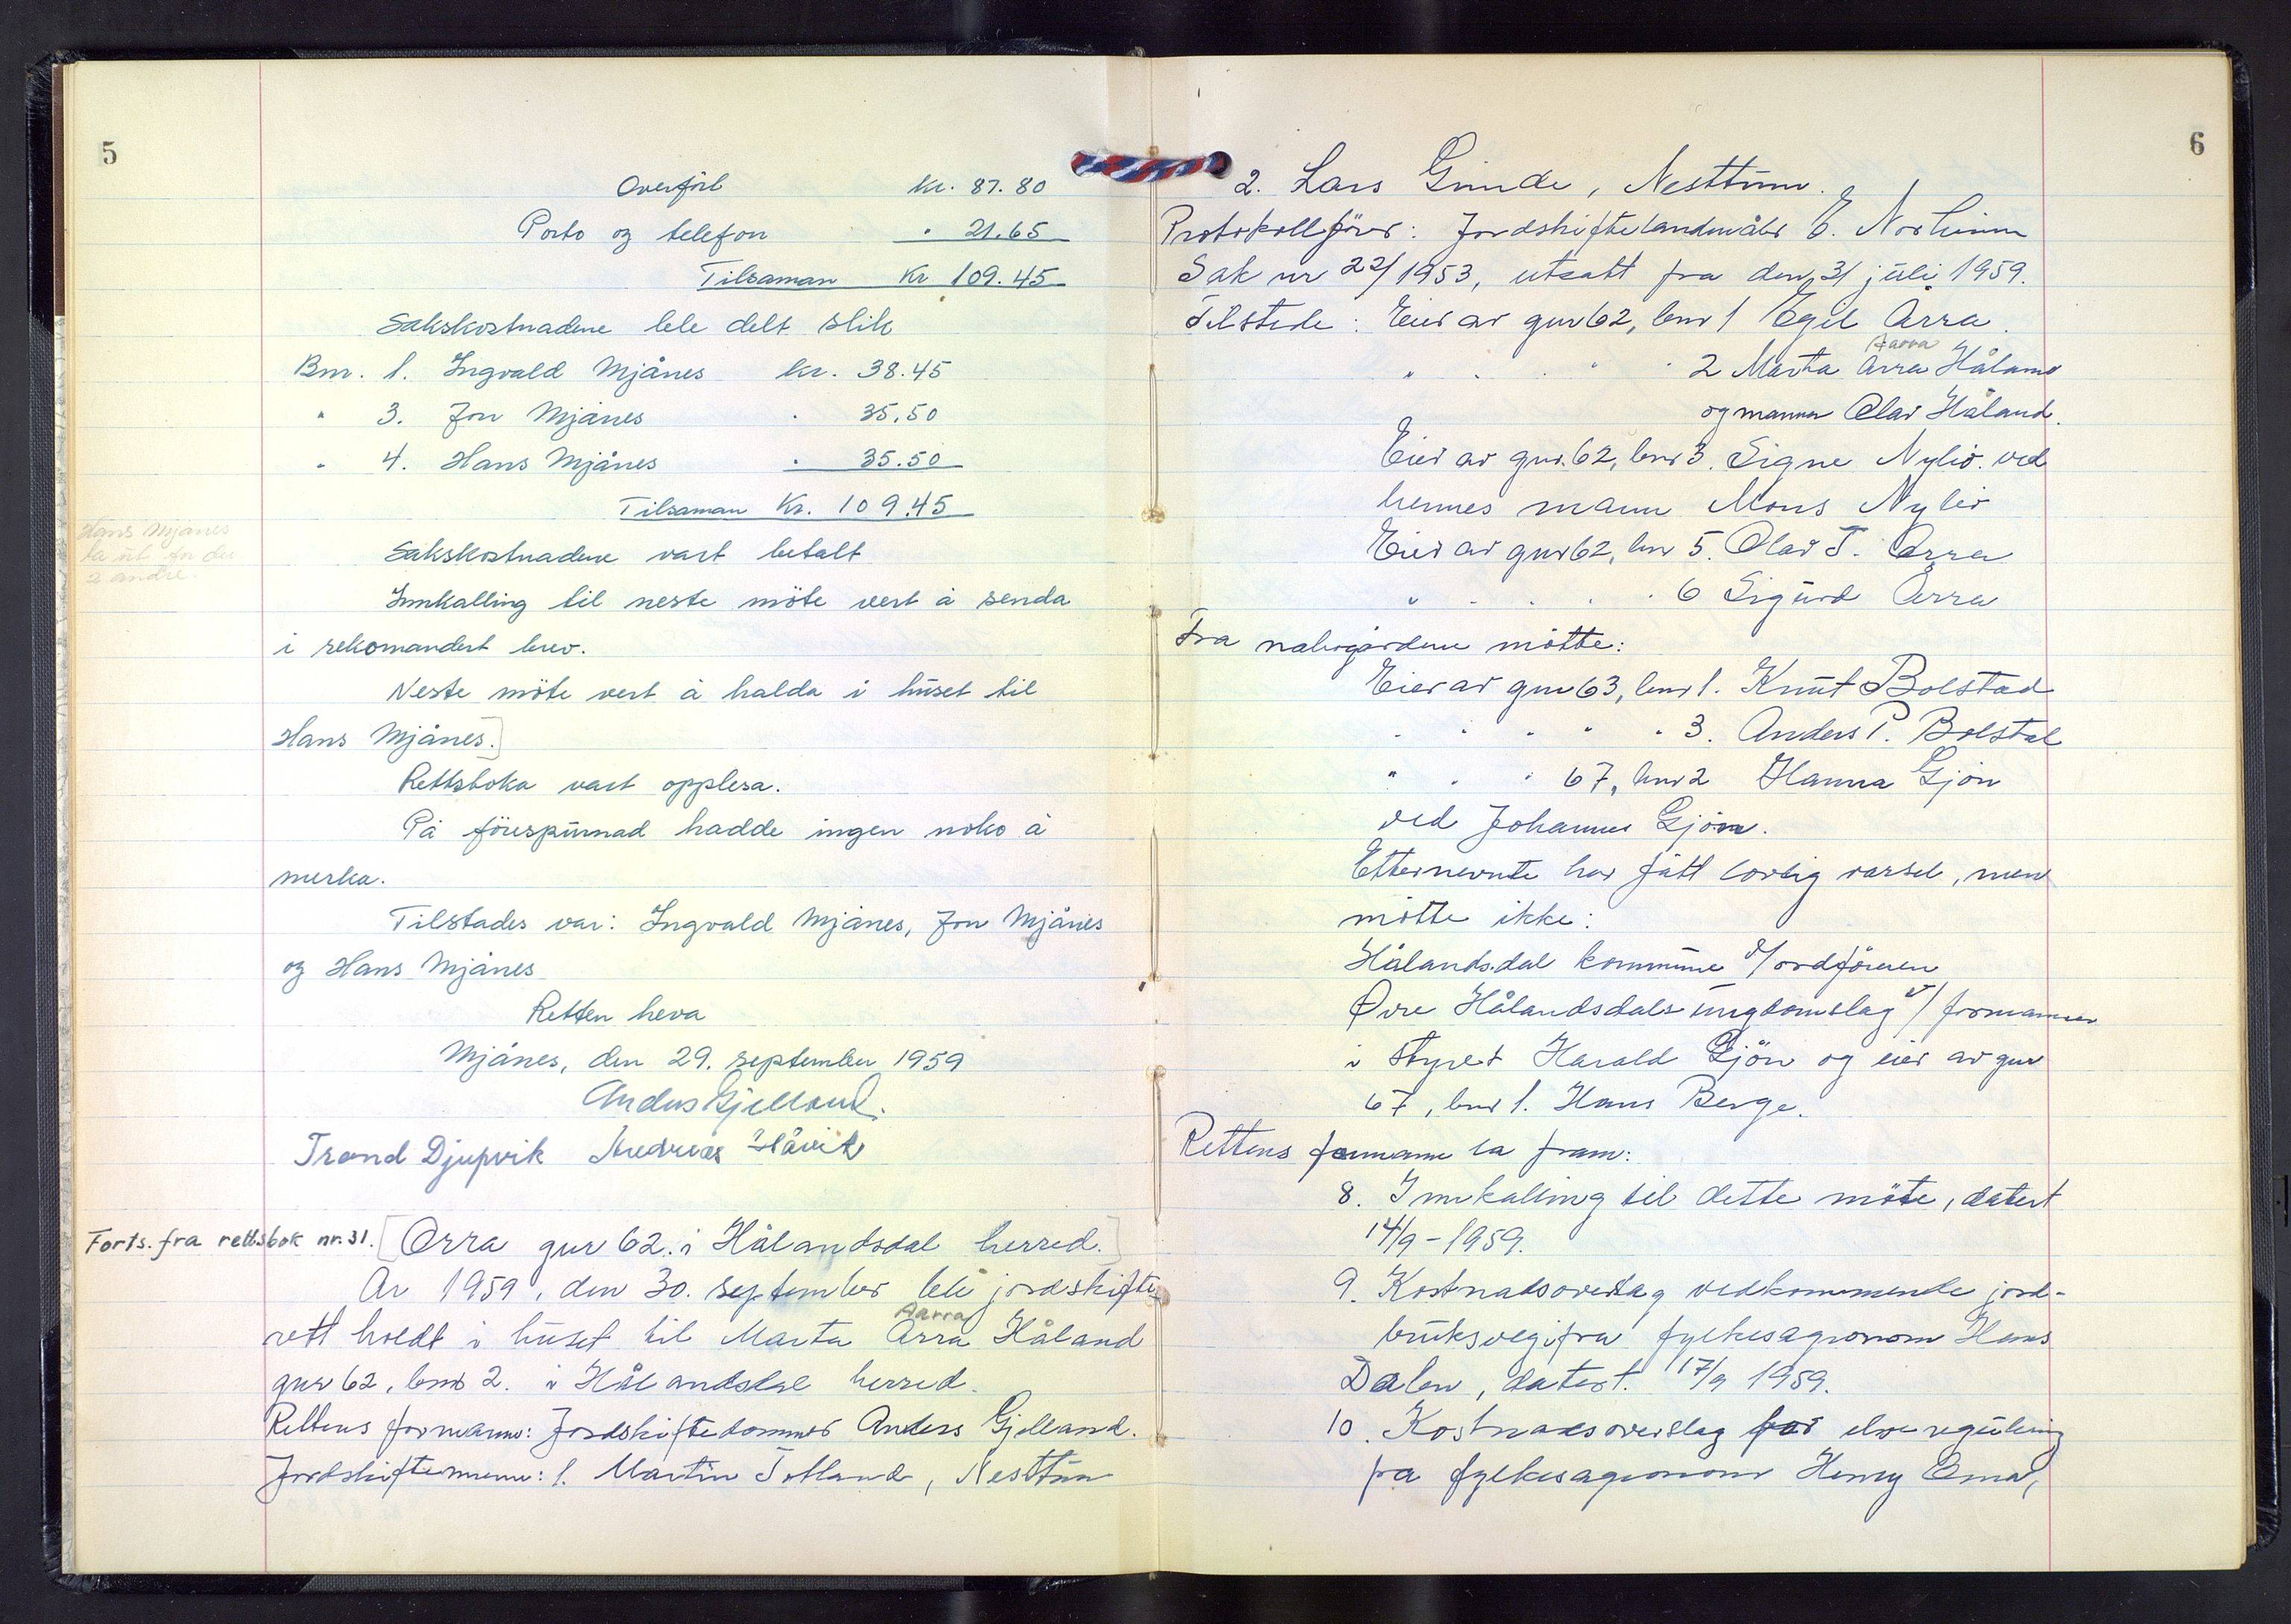 5
Overfört kr. 87.80
Porto og telefon " 21.65
Tilsaman Kr 109.45
Sakskostnadene ble delt slik
Bnr. 1. Ingvald Mjånes kr. 38.45
" 3. Jon Mjånes " 35.50
" 4. Hans Mjånes " 35.50
Tilsaman Kr. 109.45
Hans Mjånes
la ut for dei
2 andre.
Sakskostnadene vart betalt
Innkalling til neste möte vert å senda
i rekomandert brev.
Neste möte vert å halda i huset til
Hans Mjånes.]
Rettsboka vart opplesa.
På förespurnad hadde ingen noko å
merka.
Tilstades var: Ingvald Mjånes, Jon Mjånes
og Hans Mjånes
Retten heva
Mjånes, den 29. september 1959
Anders Gjelland.
Trond Djupvik Andreas Håvik
Forts. fra rettsbok nr. 31. [Ørra gnr 62. i Hålandsdal herred.]
År 1959, den 30. september ble jordskifte
Aarra
rett holdt i huset til Marta Årra Håland
gnr 62, bnr 2. i Hålandsdal herred.
Rettens formann: Jordskiftedommer Anders Gjelland.
Jordskiftemenn: 1. Martin Totland, Nesttun
6
2. Lars Grinde, Nesttun.
Protokollförer: Jordskiftelandmåler E. Norheim
Sak nr 22/1953, utsatt fra den 31 juli 1959.
Tilstede: Eier av gnr 62, bnr 1 Egil Årra.
Aarra
" " " " 2 Marta Årra Håland
og mannen Olav Håland.
Eier av gnr. 62, bnr 3. Signe Nylid ved
hennes mann Mons Nylid
Eier av gnr 62, bnr 5. Olav T. Årra
" " " " 6 Sigurd Årra
Fra nabogårdene mötte:
Eier av gnr 63, bnr 1. Knut Bolstad
" " " " " 3. Anders P. Bolstad
" " " 67, bnr 2 Hanna Gjön
ved Johannes Gjön.
Etternevnte har fått lovlig varsel, men
mötte ikke:
Hålandsdal kommune v/ordföreren
Øvre Hålandsdals ungdomslag v/formannen
i styret Harald Gjön og eier av gnr
67, bnr 1. Hans Berge.
Rettens formann la fram:
8. Innkalling til dette möte, datert
14/9 - 1959.
9. Kostnadsoverslag vedkommende jord-
bruksveg ifra fylkesagronom Hans
Dalen, datert. 17/9 1959.
10. Kostnadsoverslag for elveregulering
fra fylkesagronom Henry